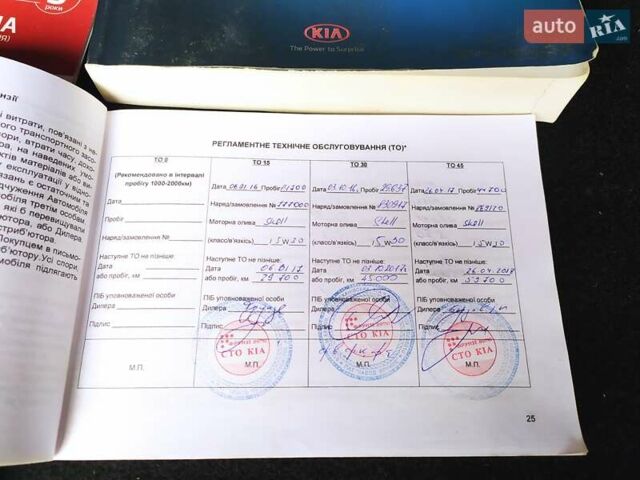 роки
IA
KIA
The Power to Surprise
auto
RIA
.com
нзії
і витрати, пов'язані з не-
ого транспортного засо-
ори, втрати часу, дохо-
ра, на наведених, умо-
ктів матеріалів або ви-
експлуатації у відно-
є остаточним та
дчуження Автомобіля
обіля третім особам
які б перевищували
ютора, або Дилера
стриб'ютора.
Покупцем в письмо-
иб'ютору. Усі спори,
мобіля підлягають
РЕГЛАМЕНТНЕ ТЕХНІЧНЕ ОБСЛУГОВУВАННЯ (ТО)*
ТО 0
(Рекомендовано в інтервалі
пробігу 1000-2000км)
Дата
Пробіг
Наряд/замовлення №
ПІБ уповноваженої особи
Дилера
Підпис
М.П.
ТО 15
Дата 06.01.16 Пробіг
Наряд/замовлення №
Моторна олива Shell
(клас/в'язкість) 5W30
Наступне ТО не пізніше:
Дата 06.01.17
або пробіг, км 29 700
ПІБ уповноваженої особи
Дилера
Підпис
СТО KIA
М.П.
ТО 30
Дата 03.10.16 Пробіг
Наряд/замовлення №
Моторна олива Shell
(клас/в'язкість) 5W30
Наступне ТО не пізніше:
Дата 03.10.2017
або пробіг, км 45000
ПІБ уповноваженої особи
Дилера
Підпис
СТО KIA
М.П.
ТО 45
Дата 26.04.17 Пробіг
Наряд/замовлення №
Моторна олива Shell
(клас/в'язкість) 5W30
Наступне ТО не пізніше:
Дата 26.04.2018
або пробіг, км 59700
ПІБ уповноваженої особи
Дилера
Підпис
СТО KIA
М.П.
25